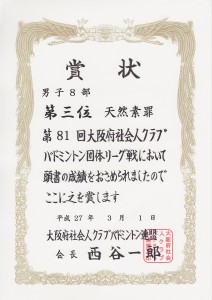 賞状
男子8部
第三位 天然素罪
第81回大阪府社会人クラブ
バドミントン団体リーグ戦において
頭書の成績をおさめられましたので
ここにえを賞します
平成27年 3月 1日
大阪府社会人クラブバドミントン連盟
会長 西谷一郎